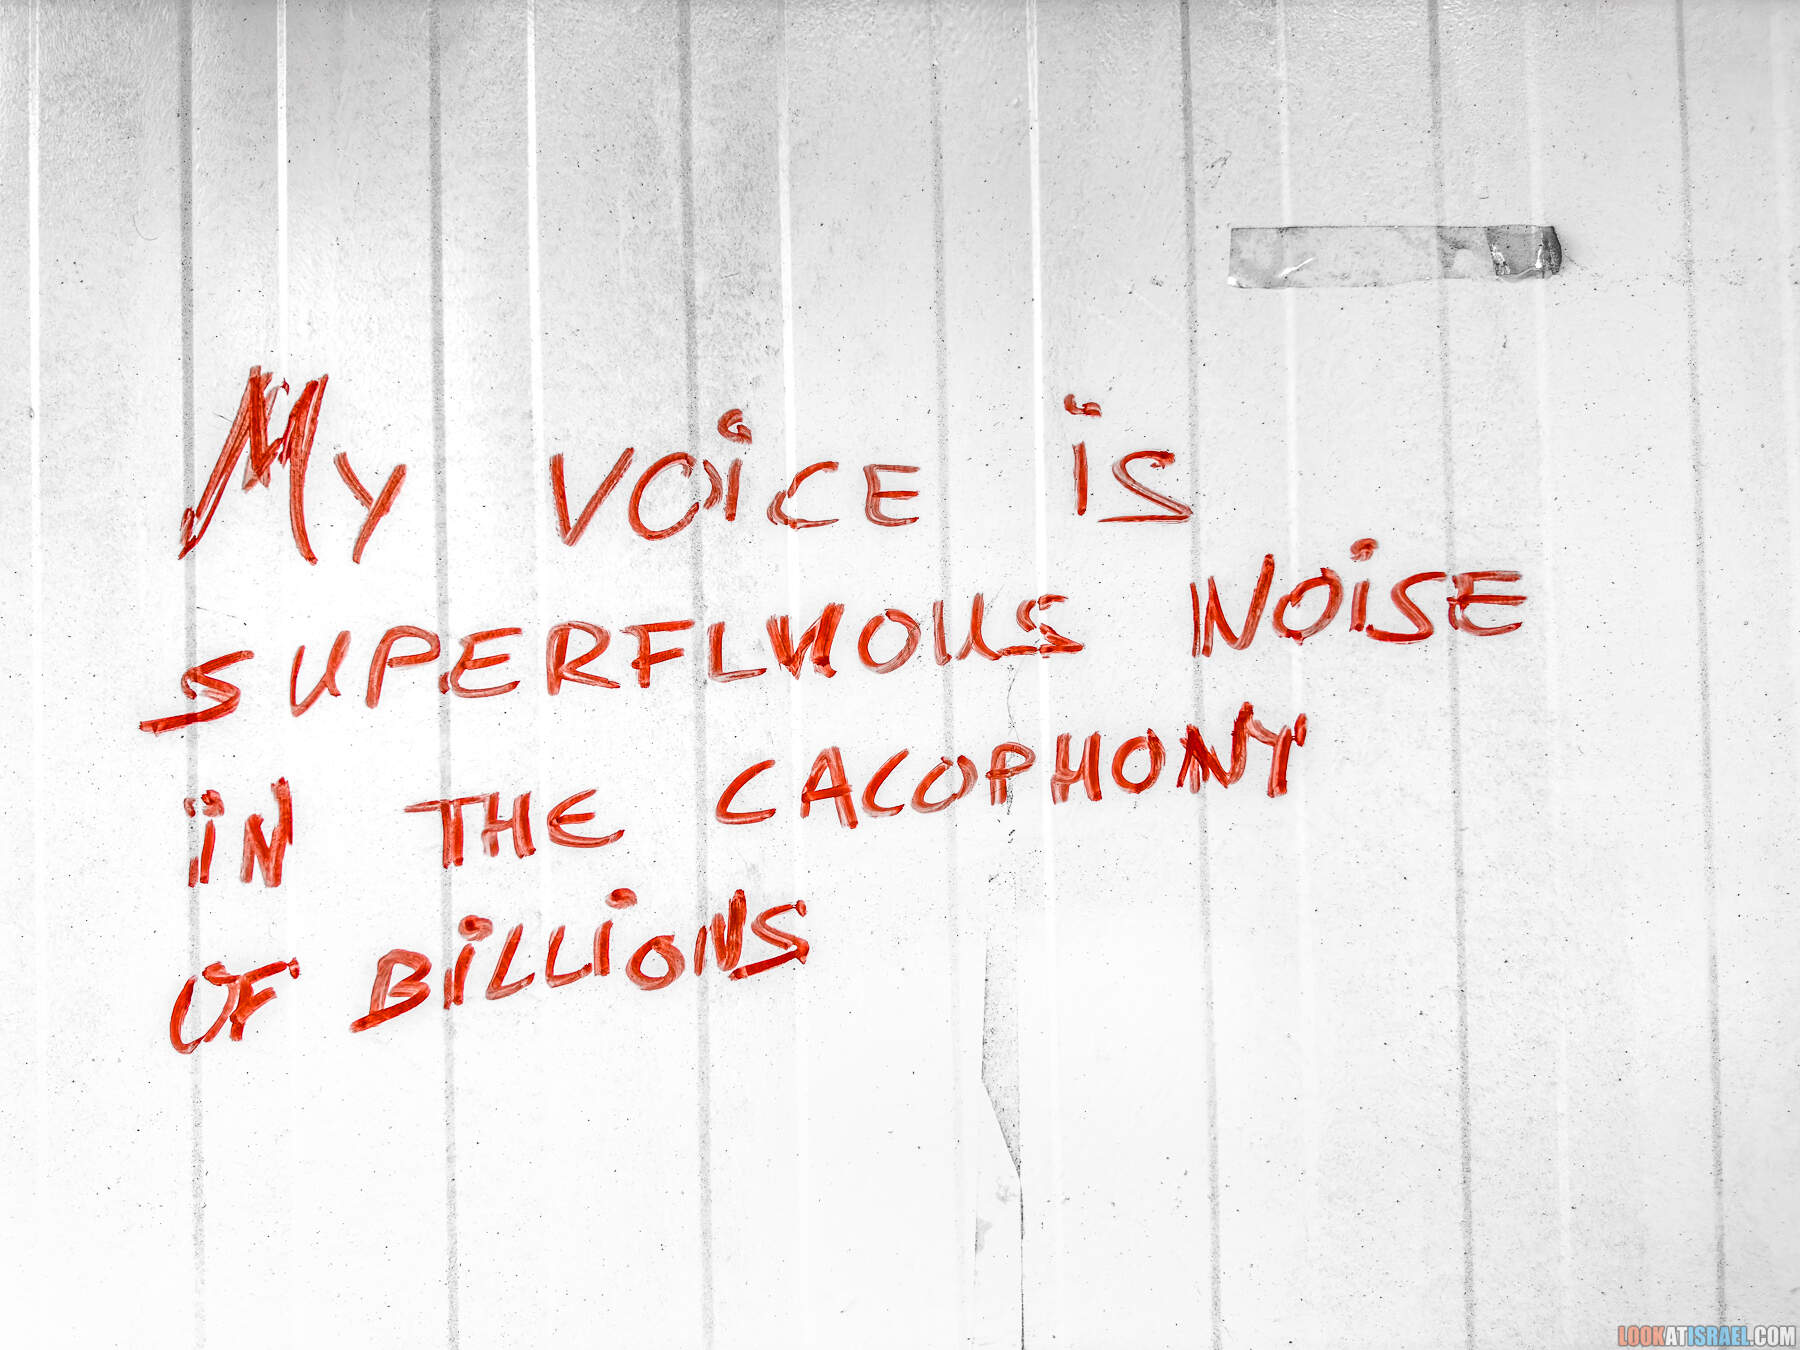 My VOiCE iS
SUPERFLUOUS NOiSE
iN THE CACOPHONY
OF BiLLiONS
LOOKATISRAEL.COM